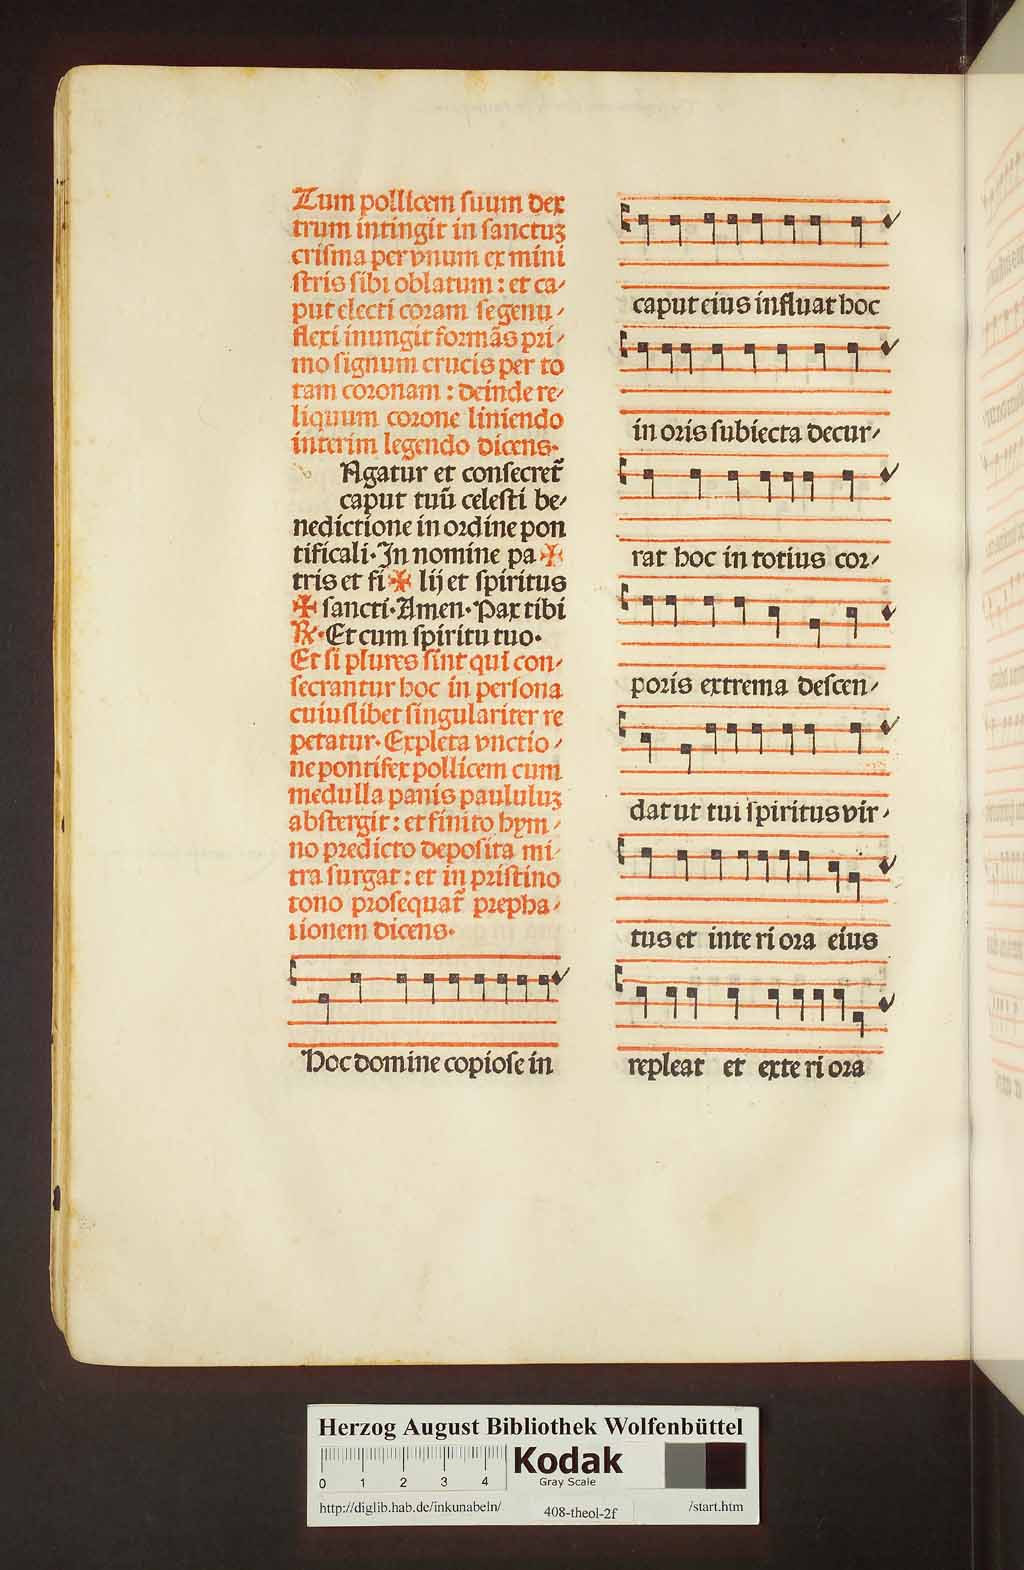 Tum pollicem suum dex
trum intingit in sanctuʒ
crisma per vnum ex mini
stris sibi oblatum : et ca⸗
put electi coram se genu⸗
flexi inungit formãs pri⸗
mo signum crucis per to
tam coronam : deinde re⸗
liquum corone liniendo
interim legendo dicens.
Ungatur et consecret̃
caput tuũ celesti be⸗
nedictione in ordine pon
tificali. In nomine pa ✠
tris et fi ✠ lij et spiritus
✠ sancti. Amen. Pax tibi
℞. Et cum spiritu tuo.
Et si plures sint qui con⸗
secrantur hoc in persona
cuiuslibet singulariter re
petatur. Expleta vnctio⸗
ne pontifex pollicem cum
medulla panis paululuʒ
abstergit : et finito hym⸗
no predicto deposita mi⸗
tra surgat : et in pristino
tono prosequat̃ prepha⸗
tionem dicens.
Hoc domine copiose in
caput eius influat hoc
in oris subiecta decur⸗
rat hoc in totius cor⸗
poris extrema descen⸗
dat ut tui spiritus vir⸗
tus et inte ri ora eius
repleat et exte ri ora
Herzog August Bibliothek Wolfenbüttel
0 1 2 3 4
Kodak
Gray Scale
http://diglib.hab.de/inkunabeln/ 408-theol-2f /start.htm